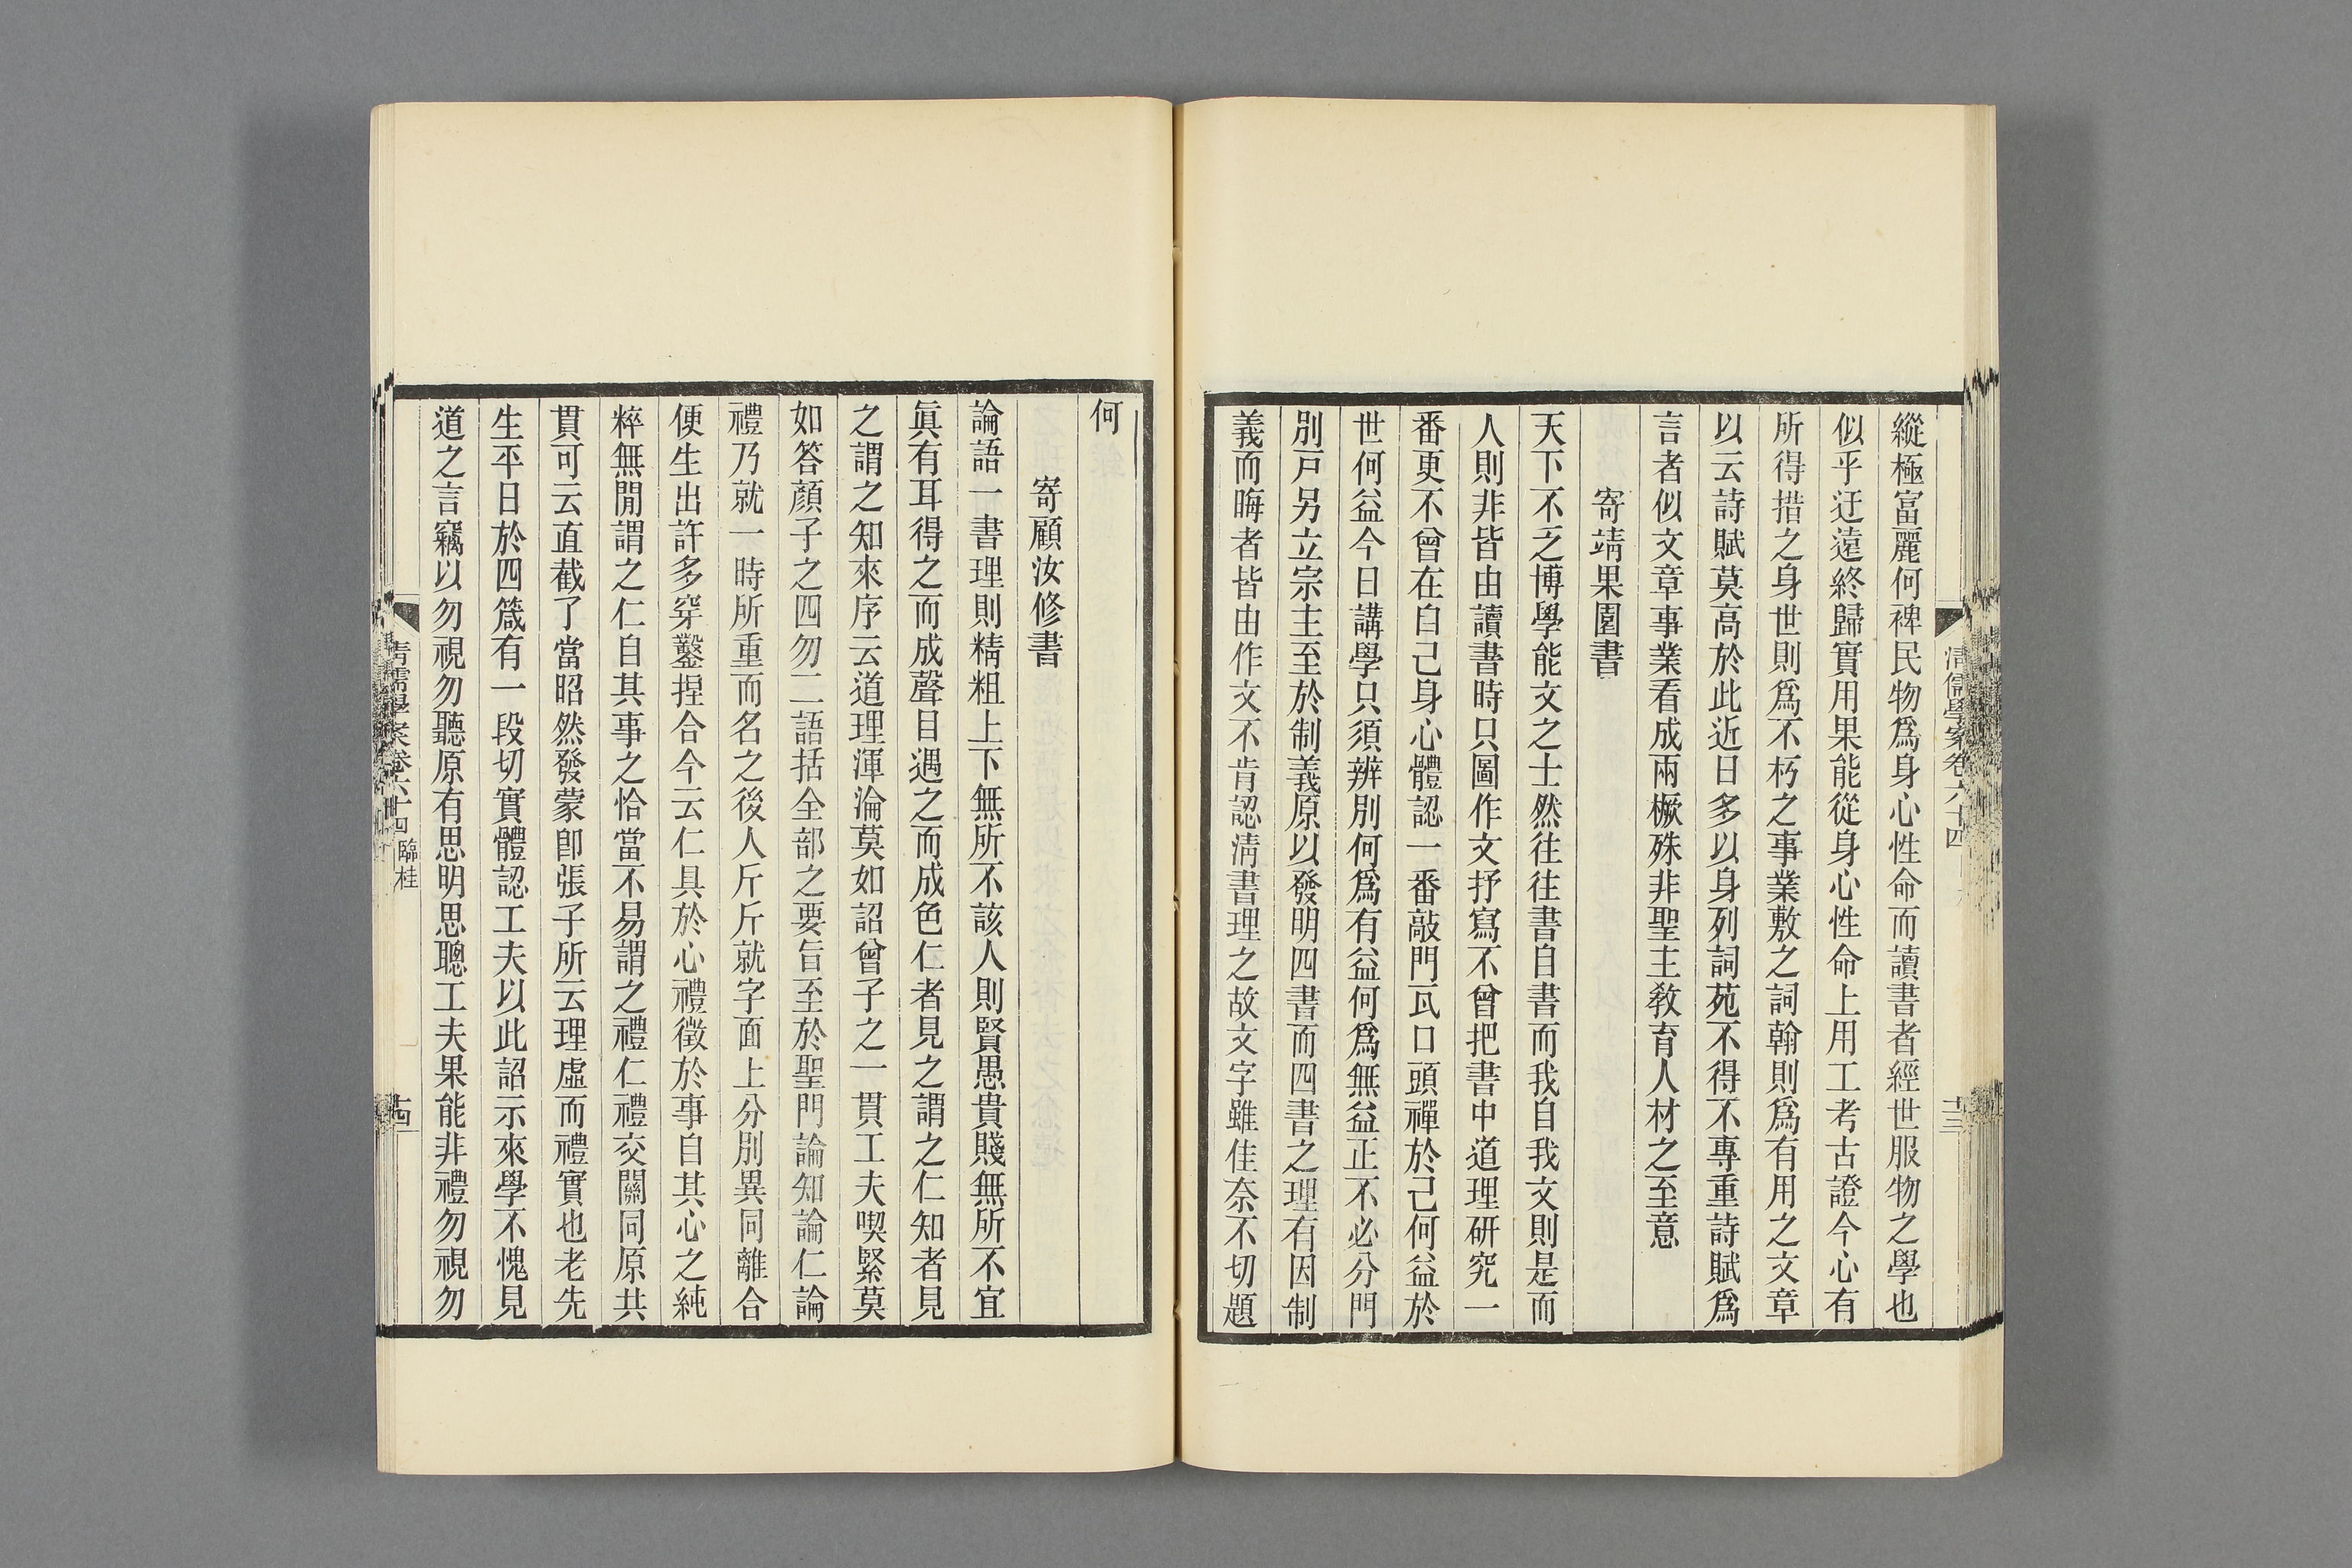 縱極富麗何裨民物爲身心性命而讀書者經世服物之學也
似乎迂遠終歸實用果能從身心性命上用工考古證今心有
所得措之身世則爲不朽之事業敷之詞翰則爲有用之文章
以云詩賦莫高於此近日多以身列詞苑不得不專重詩賦爲
言者似文章事業看成兩橛殊非聖主敎育人材之至意
寄靖果園書
天下不乏博學能文之士然往往書自書而我自我文則是而
人則非皆由讀書時只圖作文抒寫不曾把書中道理硏究一
番更不曾在自己身心體認一番敲門瓦口頭禪於己何益於
世何益今日講學只須辨別何爲有益何爲無益正不必分門
別戶另立宗主至於制義原以發明四書而四書之理有因制
義而晦者皆由作文不肯認淸書理之故文字雖佳奈不切題
淸儒學案卷六十四
十三
何
寄顧汝修書
論語一書理則精粗上下無所不該人則賢愚貴賤無所不宜
眞有耳得之而成聲目遇之而成色仁者見之謂之仁知者見
之謂之知來序云道理渾淪莫如詔曾子之一貫工夫喫緊莫
如答顏子之四勿二語括全部之要旨至於聖門論知論仁論
禮乃就一時所重而名之後人斤斤就字面上分別異同離合
便生出許多穿鑿捏合今云仁具於心禮徵於事自其心之純
粹無閒謂之仁自其事之恰當不易謂之禮仁禮交關同原共
貫可云直截了當昭然發蒙卽張子所云理虛而禮實也老先
生平日於四箴有一段切實體認工夫以此詔示來學不愧見
道之言竊以勿視勿聽原有思明思聰工夫果能非禮勿視勿
淸儒學案卷六十四 臨桂
十四